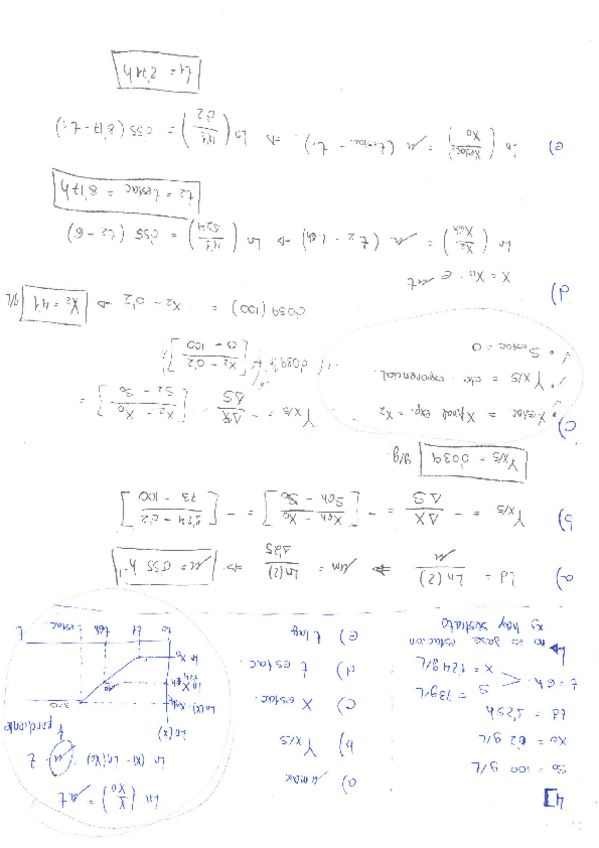 4]
S₀ = 100 g/L
X₀ = 0'2 g/L
td = 1'25h
t = 6h < S = 73g/L
X = 1'24 g/L
↳ no es fase estacion
xq hay sustrato
a) μmax
b) Yx/s
c) X estac.
d) t estac.
e) t lag
Ln (X/X₀) = μt
Ln (X) - Ln(X₀) = μ · t
pendiente
Ln(X)
Ln X₀
t₀ t₁ t6h t estac t
a) td = Ln(2)/μ ⇒ μm = Ln(2)/1'25 ⇒ μ = 0'55 h⁻¹
b) Yx/s = - ΔX/ΔS = - [X6h - X₀ / S6h - S₀] = - [1'24 - 0'2 / 73 - 100]
Yx/s = 0'039 g/g
c) • Xestac = Xfinal exp. = X₂
• Yx/s = cte exponencial.
• Sestac = 0
Yx/s = - ΔX/ΔS = - [X₂ - X₀ / S₂ - S₀] =
0'039 = - [X₂ - 0'2 / 0 - 100]
0'039 (100) = X₂ - 0'2 → X₂ = 4'1 g/L
d) X = X₀ · e^μt
Ln (X₂/X6h) = μ (t₂ - t6h) → Ln (4'1/1'24) = 0'55 (t₂ - 6)
t₂ = testac = 8'17h
e) Ln (Xestac/X₀) = μ (testac - t₁) → Ln (4'1/0'2) = 0'55 (8'17 - t₁)
t₁ = 2'71h